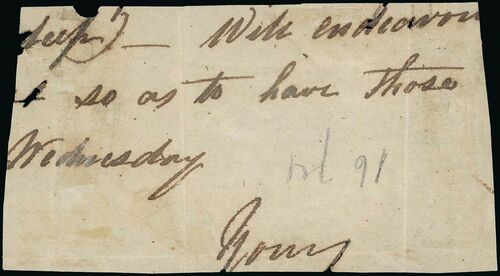 deep) — Will endeavou
so as to have those
Wednesday
91
Yours